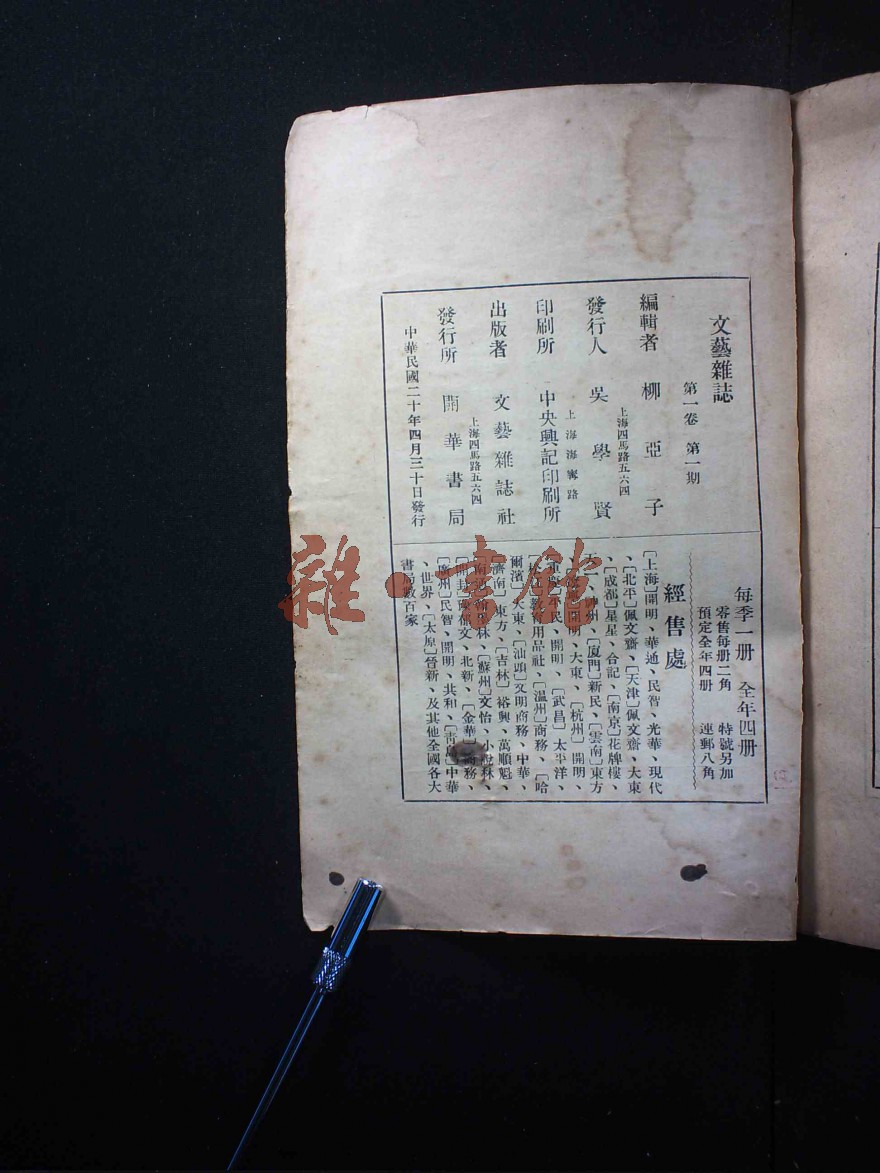 文藝雜誌
第一卷 第一期
編輯者 柳亞子
上海四馬路五六四
發行人 吳學賢
上海海寧路
印刷所 中央興記印刷所
出版者 文藝雜誌社
上海四馬路五六四
發行所 開華書局
中華民國二十年四月三十日發行
每季一册 全年四册
零售每册二角 特號另加
預定全年四册 連郵八角
經售處
〔上海〕開明、華通、民智、光華、現代
〔北平〕佩文齋、〔天津〕佩文齋、大東
、〔成都〕星星、合記、〔南京〕花牌樓、
神州、〔厦門〕新民、〔雲南〕東方
開明、大東、〔杭州〕開明、
民、開明、〔武昌〕太平洋、
教育用品社、〔溫州〕商務、〔哈
爾濱〕大東、〔汕頭〕文明商務、中華、
〔濟南〕東方、〔吉林〕裕興、萬順魁、
林、〔蘇州〕文怡、小說林、
〔開封〕郁文、北新、〔金華〕商務、
〔廣州〕民智、開明、共和、〔青島〕中華
、世界、〔太原〕晉新、及其他全國各大
書局數百家
雜·書館